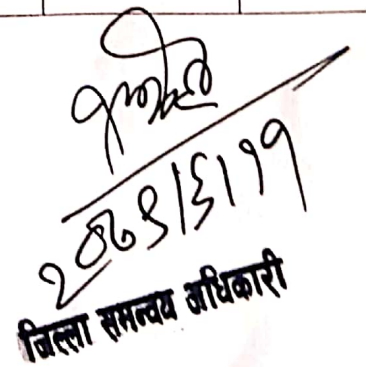 २०७९।६।११
जिल्ला समन्वय अधिकारी